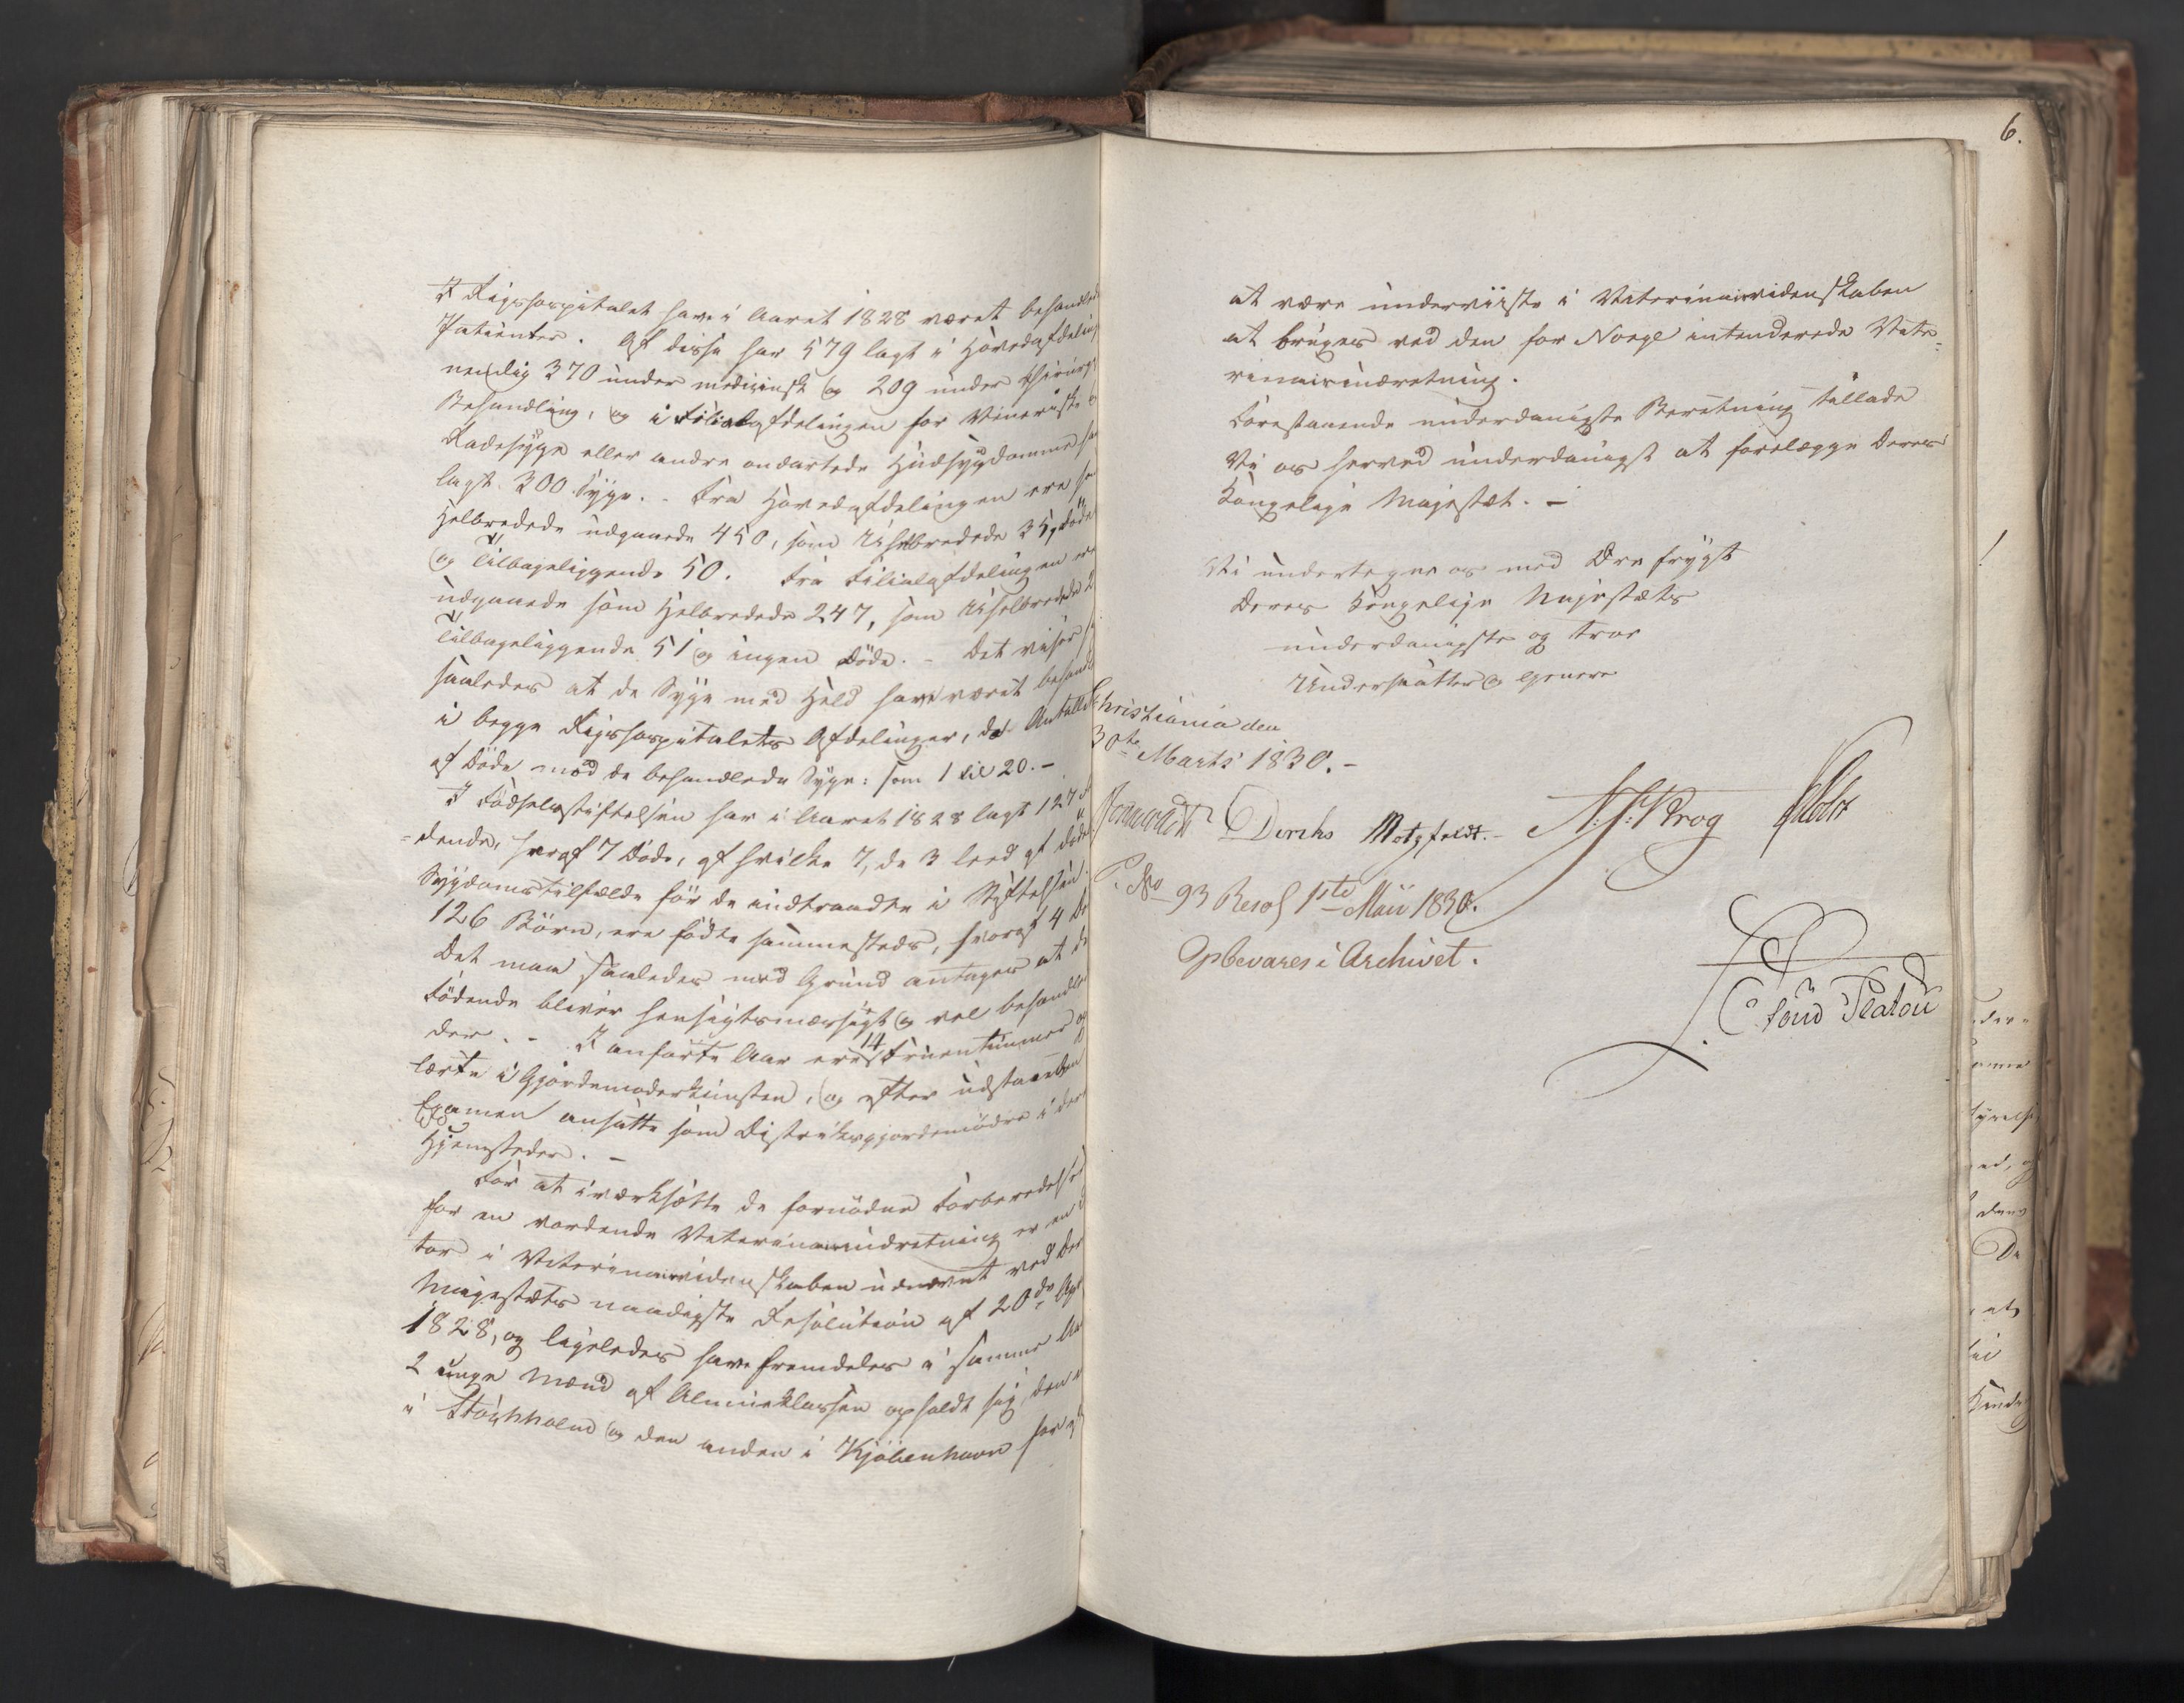 I Rigshospitalet have i Aaret 1828 været behandlede
Patienter. Af disse har 579 lagt i Hovedafdeling
nemlig 370 under medicinsk og 209 under chirurg
Behandling, og i Filialafdelingen for Veneriske
Radesyge eller andre ondartede Hudsygdomme ha
lagt 300 Syge. - Fra Hovedafdelingen ere som
Helbredede udgaaede 450, som Uhelbredede 35, døde
og Tilbageliggende 50. Fra Filialafdelingen ere
udgaaede som Helbredede 247, som Uhelbredede 2
Tilbageliggende 51 og ingen Døde. - Det viser
saaledes at de Syge med Held have været behandl
i begge Rigshospitalets Afdelinger, da Antallet
af Døde mod de behandlede Syge: som 1 til 20. -
I Fødselsstiftelsen har i Aaret 1828 lagt 127 F
-dende, hvoraf 7 Døde, af hvilke 7, de 3 leed af
Sygdomstilfælde før de indtraadte i Stiftelsen.
126 Børn, ere fødte sammesteds, hvoraf 4 D
Det maa saaledes med Grund antages at de
Fødende bliver hensigtsmæssigt og vel behandle
der. - I anførte Aar ere 14 Fruentimmer op
lærte i Gjordemoderkunsten, og efter udstanden
Examen ansatte som Distriktsgjordemødre i der
Hjemsteder. -
For at iværksætte de fornødne Forberedelser
for en vordende Veterinairindretning er en
tor i Veterinairvidenskaben udnævnt ved Der
Majestæts naadigste Resolution af 20de Apr
1828, og ligeledes have fremdeles i samme Aa
2 unge Mænd af Almueklassen opholdt sig, den e
i Stockholm og den anden i Kjöbenhavn for
6.
at være underviiste i Veterinairvidenskaben
at bruges ved den for Norge intenderede Vete-
rinairindretning.
Forestaaende underdanigste Beretning tillade
Vi os herved underdanigst at forelægge Deres
Kongelige Majestæt. -
Vi undertegne os med Ærefrygt
Deres Kongelige Majestæts
underdanigste og troe
Undersaatter og tjenere
Christiania den
30te Marts 1830. -
Diriks Motzfeldt. - N. J. Krog
P. No 93 Resol 1ste Maii 1830.
Opbevares i Archivet.
C. Lund Platou